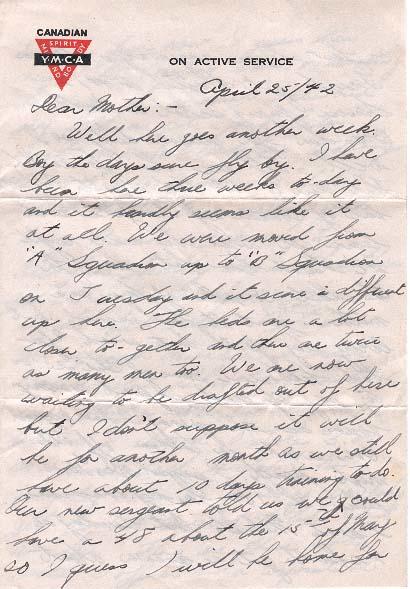 CANADIAN
SPIRIT
Y·M·C·A
MIND BODY
ON ACTIVE SERVICE
April 25/42
Dear Mother:-
Well here goes another week.
Boy the days sure fly by. I have
been here three weeks to-day
and it hardly seems like it
at all. We were moved from
"A" Squadron up to "B" Squadron
on Tuesday and it sure is different
up here. The beds are a lot
closer to-gether and there are twice
as many men too. We are now
waiting to be drafted out of here
but I don't suppose it will
be for another month as we still
have about 10 days training to do.
Our new sergeant told us we could
have a 48 about the 15th of May
so I guess I will be home for